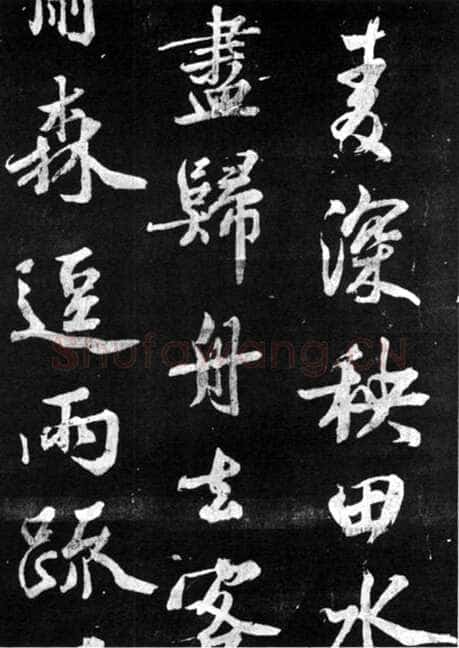 麦深秧田水
盡歸舟去客
森逗雨疏
ShufaWang.CN